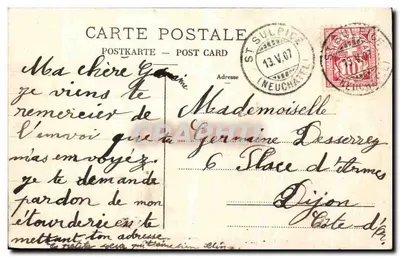 CARTE POSTALE
POSTKARTE — POST CARD
Adresse
ST SULPICE
13.V.07
(NEUCHATEL)
Ma chère Germaine
je viens te
remercier de
l'envoi que tu
m'as envoyez
je te demande
pardon de mon
étourderie en te
mettant ton adresse
Mademoiselle
Germaine Desserrey
6 Place d'Armes
Dijon
Côte d'Or